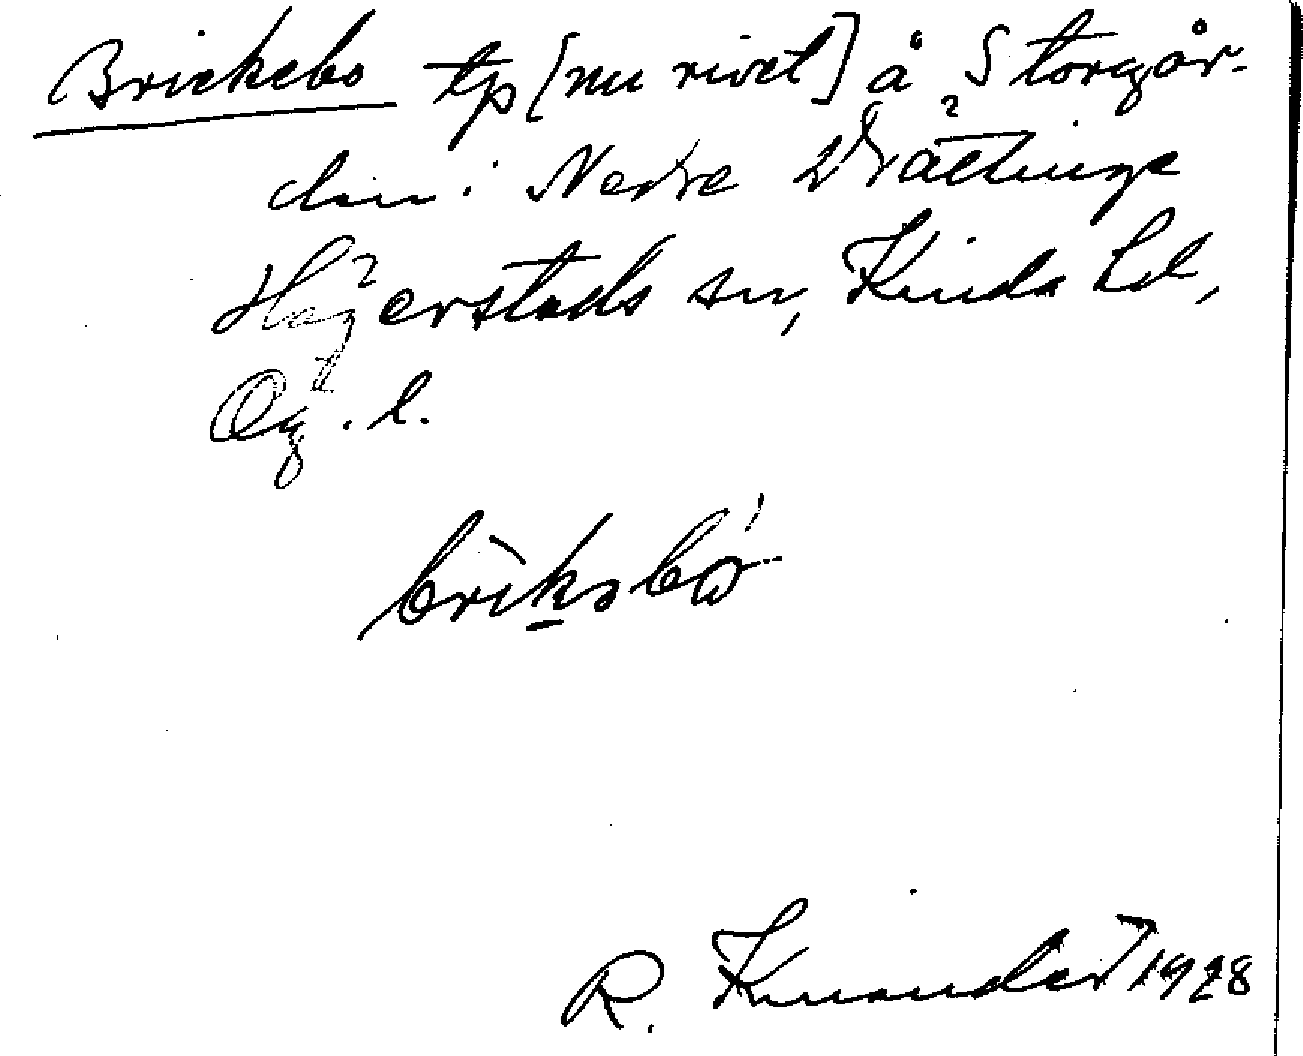 Brickebo tp [nu rivet] å Storgår-
den i Nedre Vrättinge
Hägerstads sn, Kinda hd,
Ög. l.
brìksbó
R. Knuander 1928